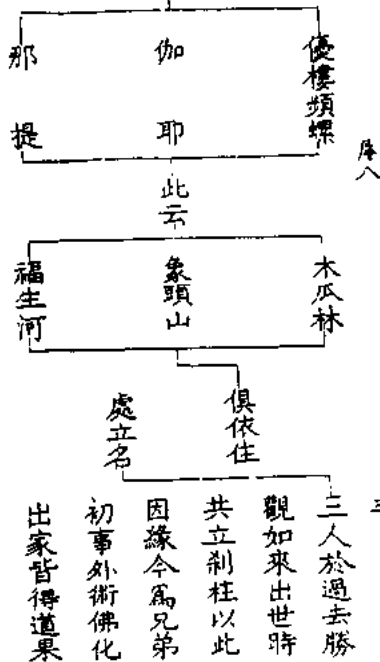 序八
優樓頻螺
伽耶
那提
此云
木瓜林
象頭山
福生河
俱依住
處立名
三人於過去勝
觀如來出世時
共立刹柱以此
因緣今爲兄弟
初事外術佛化
出家皆得道果